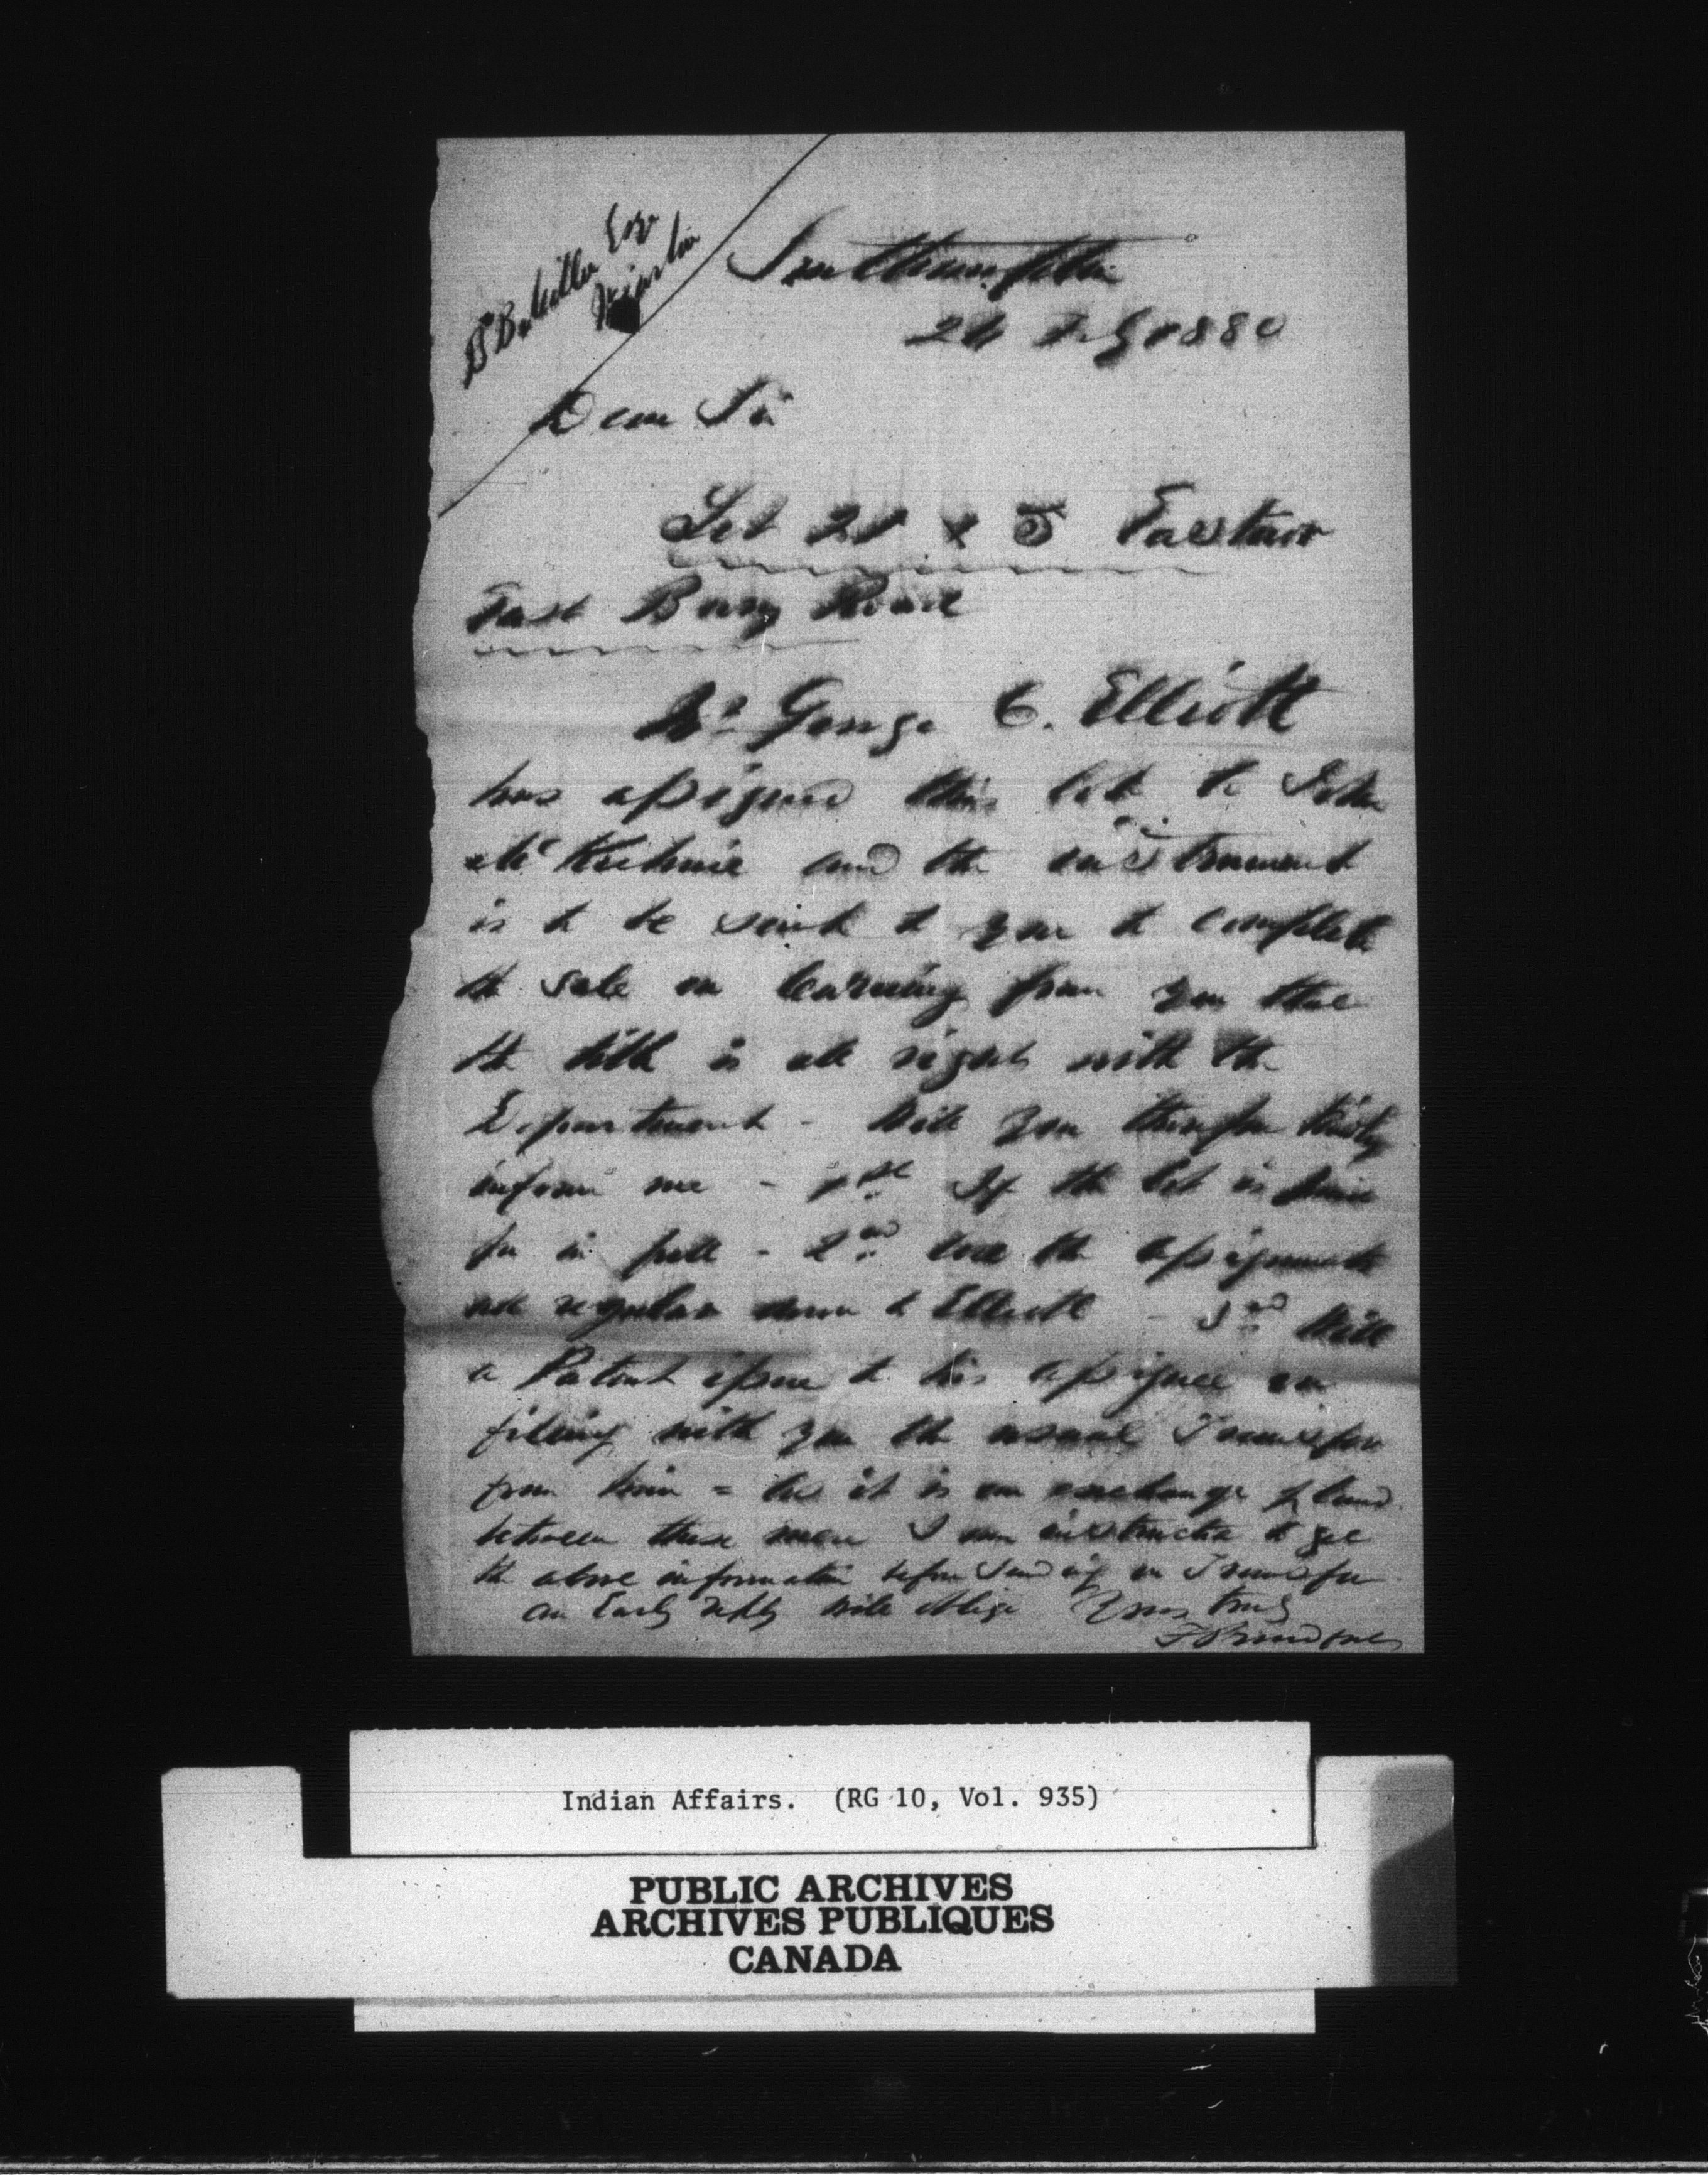 B. B. Miller Esqr
Wiarton
Southampton
24 Feby 1880
Dear Sir
Lot 21 x 5 Eastnor
East Bury Road
Mr George C. Elliott
has assigned this lot to John
and the instrument
is to be sent to you to complete
the sale on learning from you that
the title is all right with the
Department - Will you therefore kindly
inform me - 1st If the lot is paid
for in full - 2nd Are the assignments
all regular down to Elliott - 3rd Will
a Patent issue to his assignee on
filing with you the usual Transfer
from him - As it is an exchange of land
between these men I am instructed to get
the above information before sending in Transfer
an Early reply will oblige Yours truly
Indian Affairs. (RG 10, Vol. 935)
PUBLIC ARCHIVES
ARCHIVES PUBLIQUES
CANADA